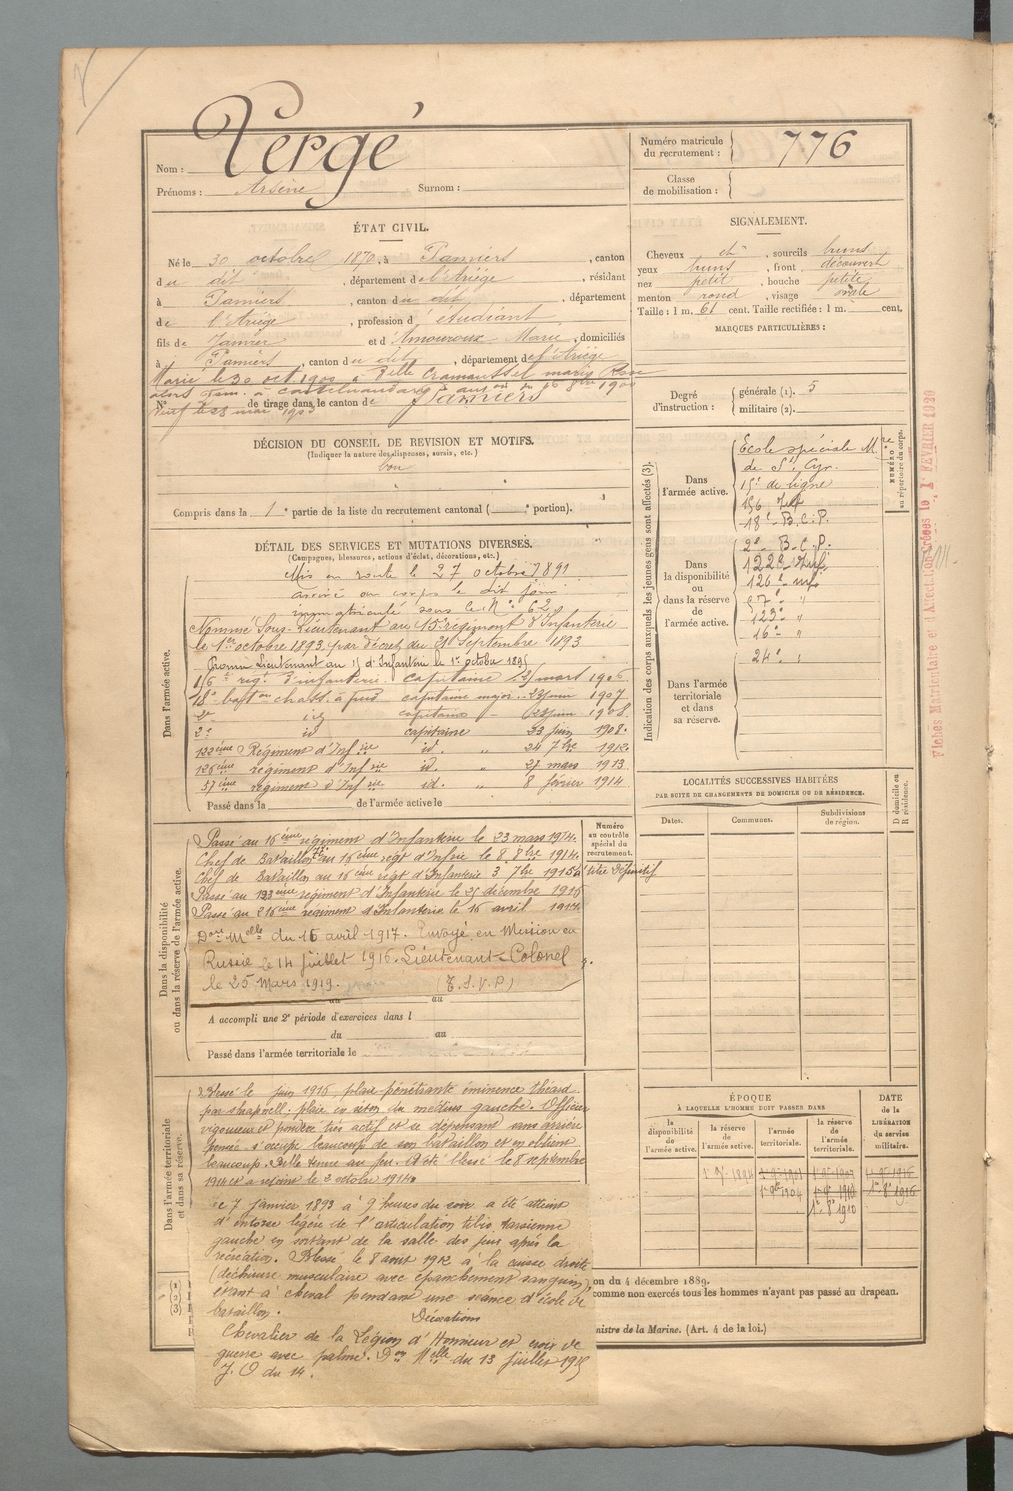 Nom : Vergé
Prénoms : Arsène Surnom :
Numéro matricule du recrutement : 776
Classe de mobilisation :
ÉTAT CIVIL.
Né le 30 octobre 1870, à Pamiers, canton
du dit, département de l'Ariège, résidant
à Pamiers, canton du dit, département
de l'Ariège, profession d'étudiant
fils de Janvier et d'Amouroux Marie, domiciliés
à Pamiers, canton du dit, département de l'Ariège
Marié le 30 oct. 1900 à Delle Cramaussel marie Rose
alors dom. à Castelnaudary
N° de tirage dans le canton de Pamiers
SIGNALEMENT.
Cheveux ch, sourcils bruns
yeux bruns, front découvert
nez petit, bouche petite
menton rond, visage ovale
Taille : 1 m. 61 cent. Taille rectifiée : 1 m. cent.
MARQUES PARTICULIÈRES :
Degré d'instruction : générale (1). 5
militaire (2).
DÉCISION DU CONSEIL DE REVISION ET MOTIFS.
(Indiquer la nature des dispenses, sursis, etc.)
bon
Compris dans la 1e partie de la liste du recrutement cantonal ( e portion).
DÉTAIL DES SERVICES ET MUTATIONS DIVERSES.
(Campagnes, blessures, actions d'éclat, décorations, etc.)
Dans l'armée active.
Mis en route le 27 octobre 1891
arrivé au corps le dit jour
immatriculé sous le N° 62
Nommé Sous-Lieutenant au 15e régiment d'Infanterie
le 1er octobre 1893 par décret du 21 Septembre 1893
Promu Lieutenant au 15 d'Infanterie le 1er octobre 1895
156e rég. d'infanterie. Capitaine mars 1906
18e bat on chass. à pied capitaine major 23 juin 1907
2e id capitaine 23 juin 1908.
2e id capitaine 23 juin 1908.
122ème Régiment d'Inf rie id. " 24 7bre 1912.
126ème régiment d'Inf rie id. " 27 mars 1913
57ème régiment d'Inf rie id. " 8 février 1914
Passé dans la de l'armée active le
Indication des corps auxquels les jeunes gens sont affectés (3).
Dans l'armée active.
École spéciale Mre
de St Cyr.
15e de ligne
156 Inf
18e B.C.P.
Dans la disponibilité ou dans la réserve de l'armée active.
2e B.C.P.
122e Inf
126e inf
57e "
123e "
16e "
24e "
Dans l'armée territoriale et dans sa réserve.
NUMÉRO au répertoire du corps.
Fiches Matriculaire et d'Affectation créées le 1 FÉVRIER 1920
LOCALITÉS SUCCESSIVES HABITÉES
PAR SUITE DE CHANGEMENTS DE DOMICILE OU DE RÉSIDENCE.
Dates. Communes. Subdivisions de région. D domicile ou R résidence.
Dans la disponibilité ou dans la réserve de l'armée active.
Numéro au contrôle spécial du recrutement.
Passé au 16ème régiment d'Infanterie le 23 mars 1914.
Chef de Bataillon TT au 16ème régt d'Inferie le 8 8bre 1914.
Chef de Bataillon au 16ème régt d'Infanterie 3 7bre 1915 à titre définitif
Passé au 123ème régiment d'Infanterie le 25 décembre 1916
Passé au 216ème régiment d'Infanterie le 16 avril 1917.
Don Melle du 16 avril 1917. Envoyé en Mission en
Russie le 14 Juillet 1916. Lieutenant-Colonel
le 25 Mars 1919. (T.S.V.P.)
du au
A accompli une 2e période d'exercices dans l
du au
Passé dans l'armée territoriale le
Dans l'armée territoriale et dans sa réserve.
Blessé le juin 1916, plaie pénétrante éminence thénard
par shrapnell; plaie en séton du médius gauche. Officier
vigoureux et pondéré très actif et se dépensant sans arrière
pensée. s'occupe beaucoup de son bataillon et en obtient
beaucoup. Belle tenue au feu. A été blessé le 8 septembre
1914 et a rejoint le 3 octobre 1914.
Le 7 Janvier 1893 à 9 heures du soir a été atteint
d'entorse légère de l'articulation tibio tarsienne
gauche en sortant de la salle des jeux après la
récréation. Blessé le 8 août 1912 à la cuisse droite
(déchirure musculaire avec épanchement sanguin),
étant à cheval pendant une séance d'école de
bataillon.
Décorations
Chevalier de la Légion d'Honneur et croix de
guerre avec palme. Don Melle du 13 Juillet 1915
J.O du 14.
ÉPOQUE
À LAQUELLE L'HOMME DOIT PASSER DANS
la disponibilité de l'armée active. la réserve de l'armée active. l'armée territoriale. la réserve de l'armée territoriale.
DATE de la LIBÉRATION du service militaire.
1er 9bre 1894 1er 9bre 1904 1er 8 1910 1er 8 1916
on du 4 décembre 1889.
comme non exercés tous les hommes n'ayant pas passé au drapeau.
nistre de la Marine. (Art. 4 de la loi.)
(1)
(2)
(3)